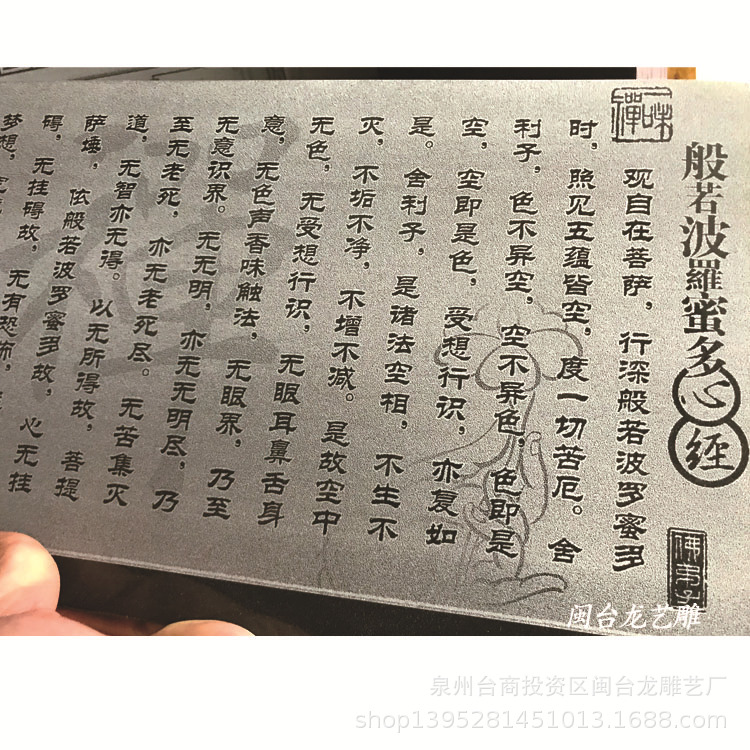 一味禪
般若波羅蜜多心经
观自在菩萨，行深般若波罗蜜多
时，照见五蕴皆空，度一切苦厄。舍
利子，色不异空，空不异色，色即是
空，空即是色，受想行识，亦复如
是。舍利子，是诸法空相，不生不
灭，不垢不净，不增不减。是故空中
无色，无受想行识，无眼耳鼻舌身
意，无色声香味触法，无眼界，乃至
无意识界。无无明，亦无无明尽，乃
至无老死，亦无老死尽。无苦集灭
道，无智亦无得。以无所得故，菩提
萨埵，依般若波罗蜜多故，心无挂
碍，无挂碍故，无有恐怖，
梦想，
禪
佛弟子
闽台龙艺雕
泉州台商投资区闽台龙雕艺厂
shop1395281451013.1688.com